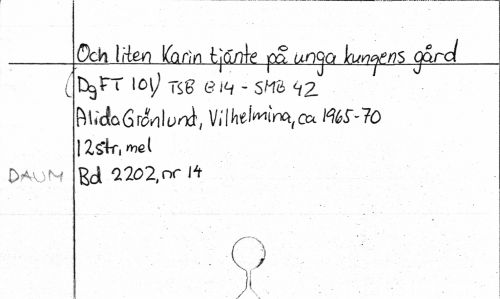 Och liten Karin tjänte på unga kungens gård
(DgFT 101) TSB B 14 - SMB 42
Alida Grönlund, Vilhelmina, ca 1965-70
12 str, mel
DAUM Bd 2202, nr 14